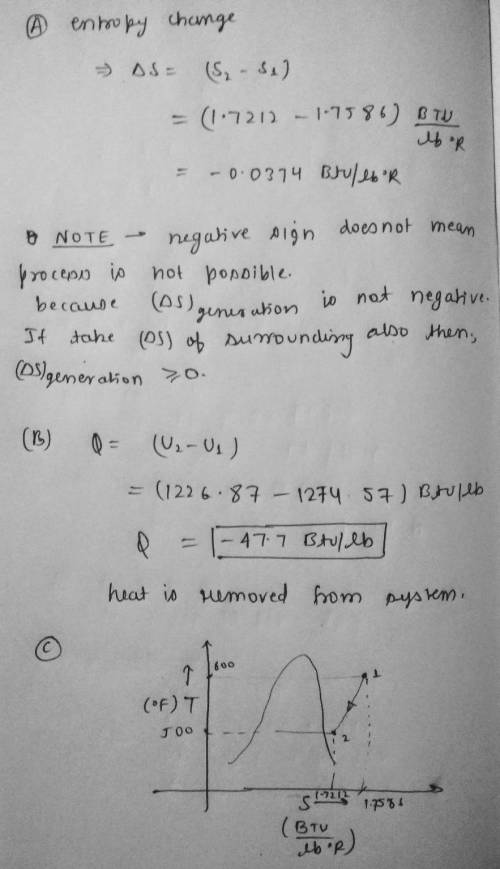 (A) entropy change
⇒ ΔS = (S₂ - S₁)
= (1.7212 - 1.7586) BTU/lb°R
= -0.0374 Btu/lb°R
NOTE → negative sign does not mean
process is not possible.
because (ΔS)generation is not negative.
If take (ΔS) of surrounding also then,
(ΔS)generation ≥ 0.
(B) Q = (U₂ - U₁)
= (1226.87 - 1274.57) Btu/lb
Q = -47.7 Btu/lb
heat is removed from system.
(C)
↑ 600 1
(°F) T
500 2
S → 1.7212 1.7586
(BTU/lb°R)